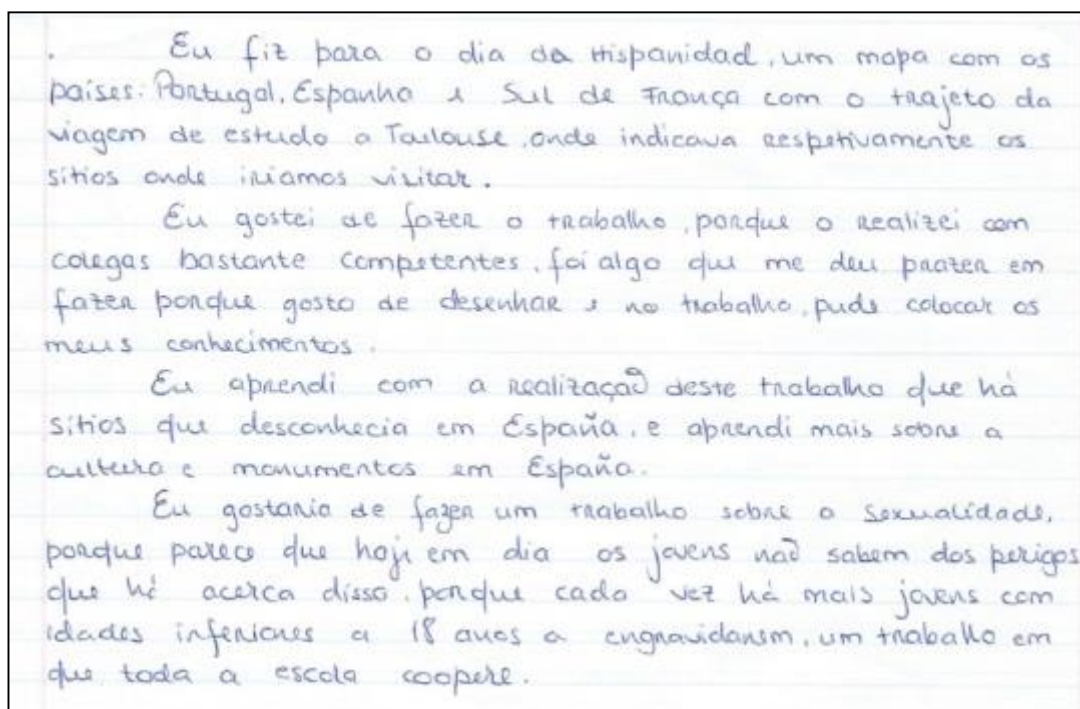 . Eu fiz para o dia da Hispanidad, um mapa com os
países: Portugal, Espanha e Sul de França com o trajeto da
viagem de estudo a Toulouse, onde indicava respetivamente os
sítios onde iriamos visitar.
Eu gostei de fazer o trabalho, porque o realizei com
colegas bastante competentes, foi algo que me deu prazer em
fazer porque gosto de desenhar e no trabalho, pude colocar os
meus conhecimentos.
Eu aprendi com a realização deste trabalho que há
sítios que desconhecia em España, e aprendi mais sobre a
cultura e monumentos em España.
Eu gostaria de fazer um trabalho sobre a Sexualidade,
porque parece que hoje em dia os jovens não sabem dos perigos
que há acerca disso, porque cada vez há mais jovens com
idades inferiores a 18 anos a engravidarem, um trabalho em
que toda a escola coopere.